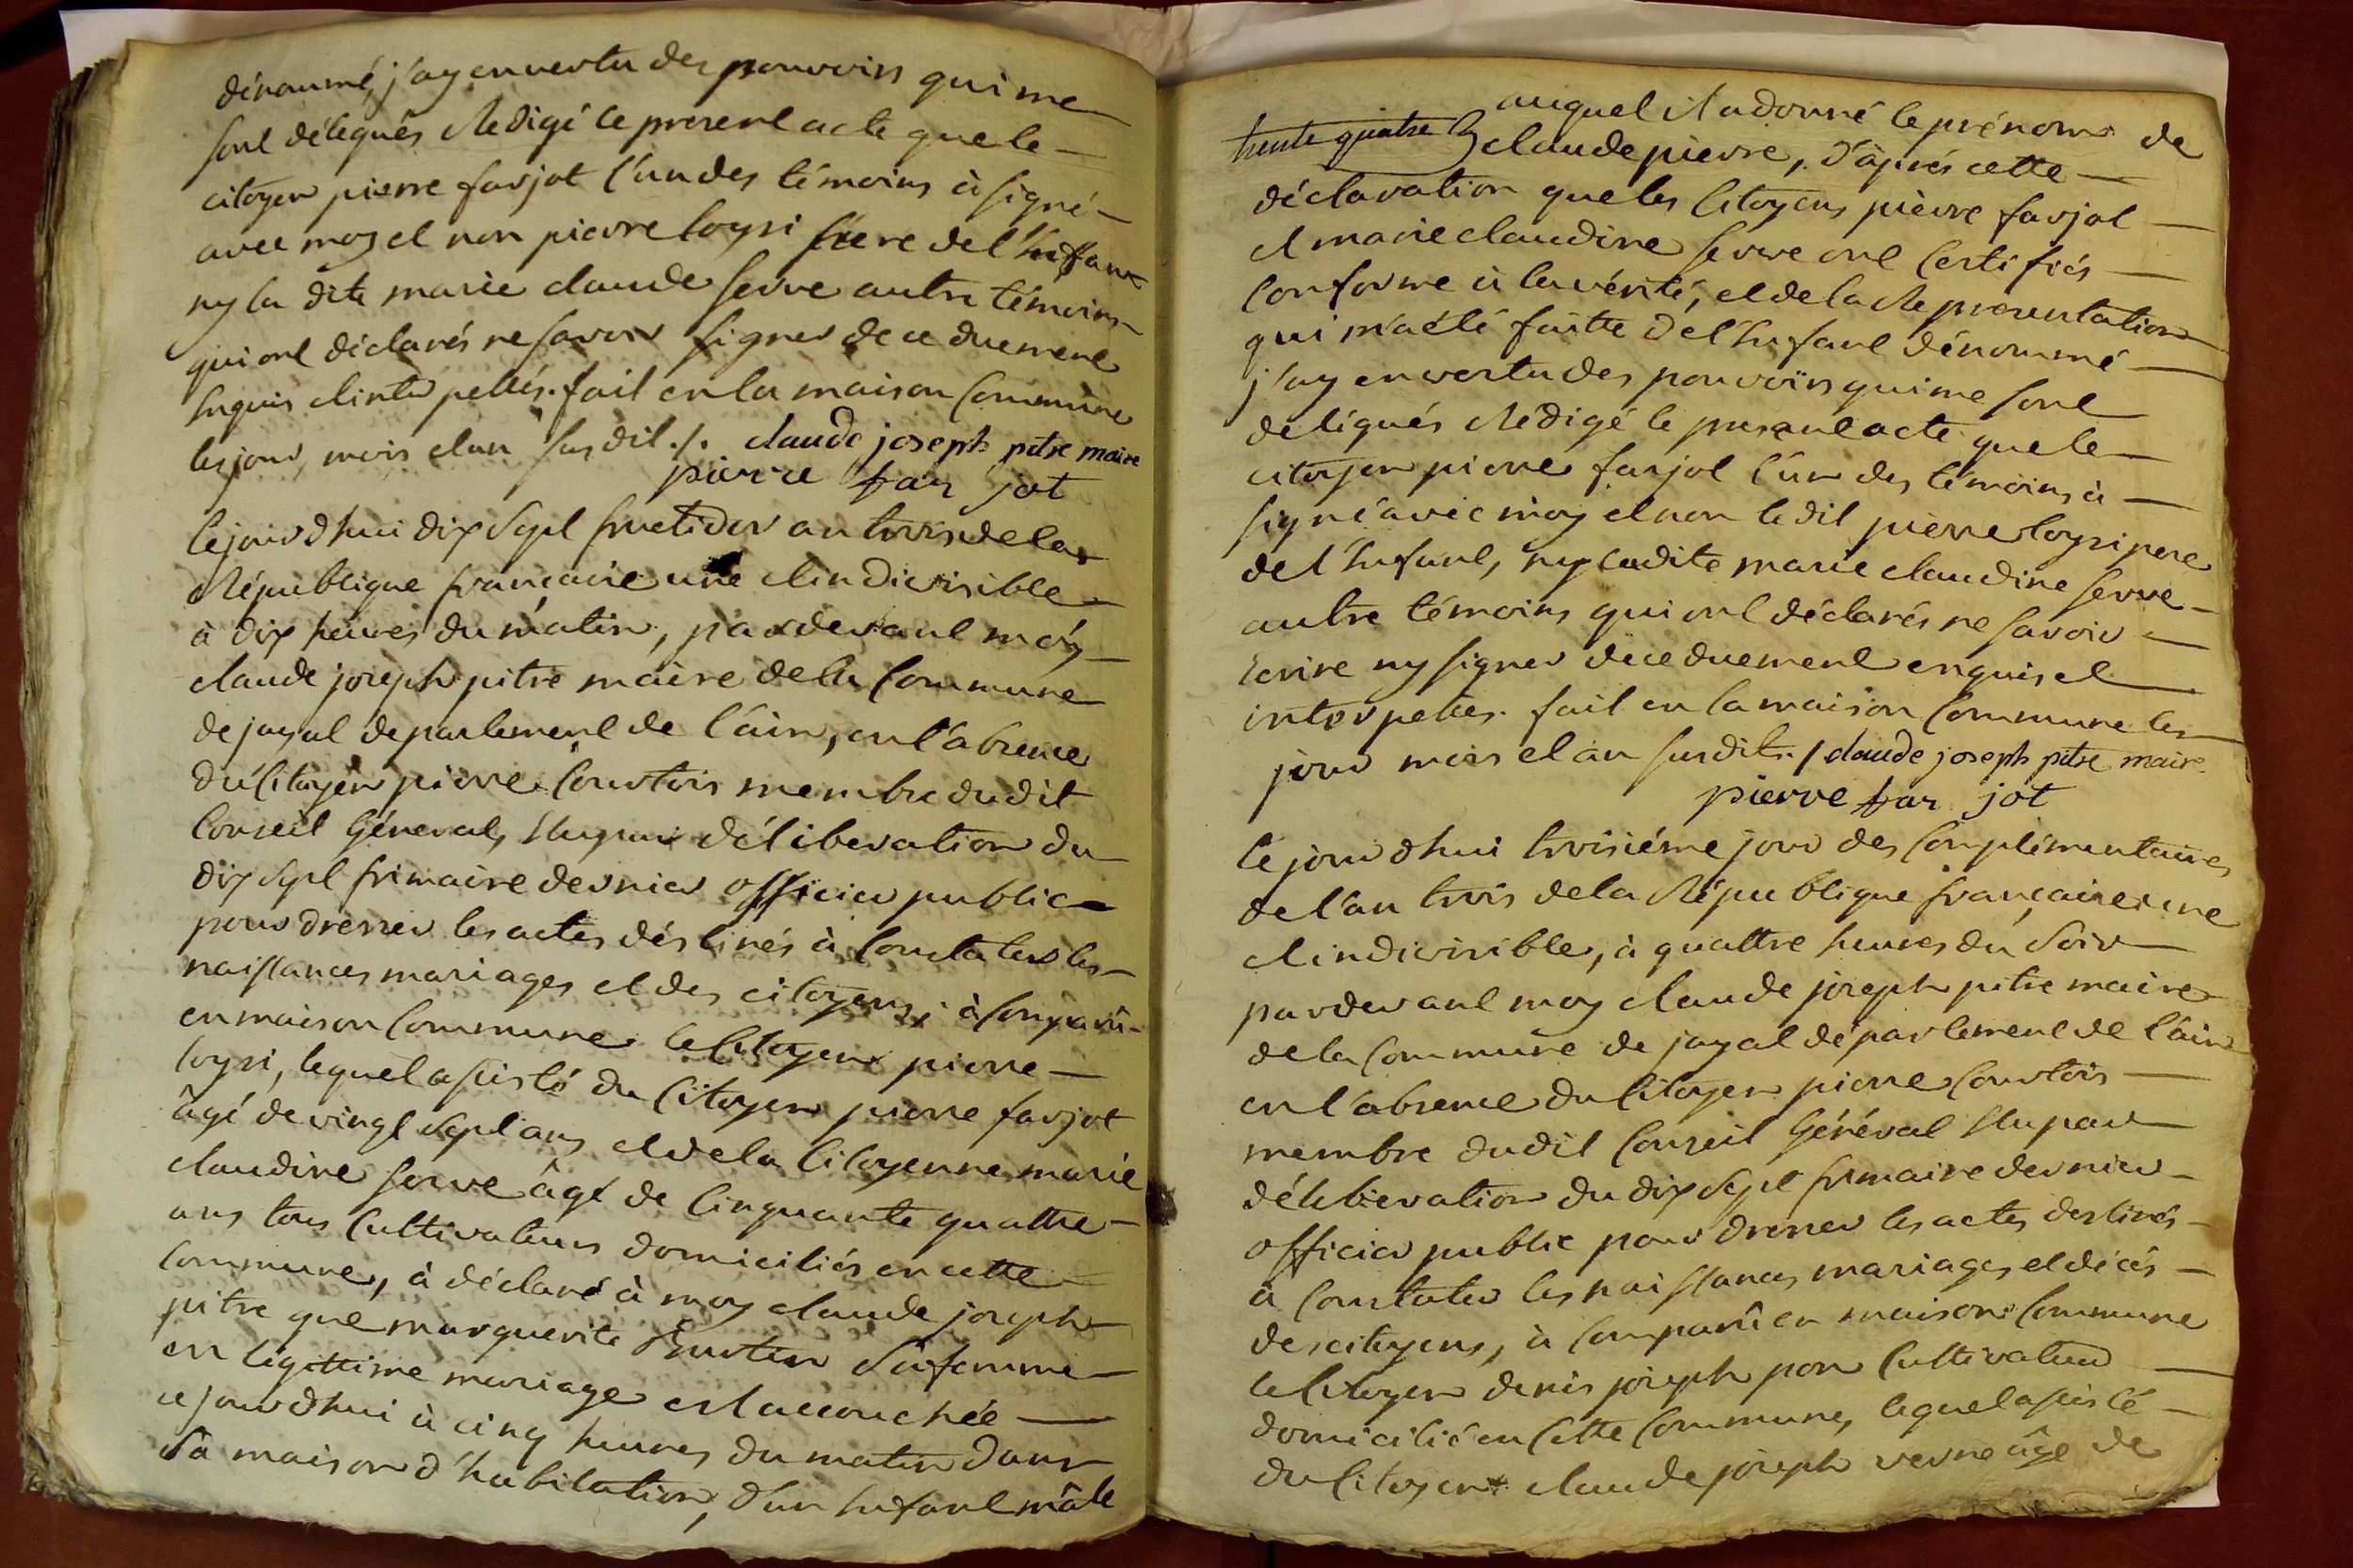 dénommé, j'ay en vertu des pouvoirs qui me
sont délegués Redigé le present acte que le
citoyen pierre farjot l'un des témoins à signé
avec moy et non pierre loysi père de l'Enffant
ny la dite marie claude serve autre témoins
qui ont déclarés ne savoir signer de ce duement
Enquis et interpellés. fait en la maison Commune
les jour, mois et an susdit ./. claude joseph pitre maire
pierre far jot
Cejourdhui dix Sept fructidor an trois de la
République francaise une et indivisible
à dix heures du matin, pardevant moy
claude joseph pitre maire de la Commune
de jayat departement de l'ain, en l'absence
du Citoyen pierre Courtois membre dudit
Conseil Géneral, Elu par déliberation du
dix Sept frimaire dernier officier public
pour dresser les actes déstinés à Constater les
naissances mariages et des citoyens, à Comparû
en maison Commune le Citoyen pierre
loysi, lequel assisté du Citoyen pierre farjot
âgé de vingt Sept ans et de la Citoyenne marie
claudine serve âgé de Cinquante quattre
ans tous Cultivateurs domiciliés en cette
Commune, à déclaré à moy claude joseph
pitre que marguerite Sa femme
en légittime mariage est accouchée
cejourdhui à cinq heures du matin dans
Sa maison d'habitation, d'un Enfant mâle
trente quatre auquel il a donné le prénom de
claude pierre, d'àprés cette
déclaration que les Citoyens pièrre farjot
et marie claudine serve ont Certifiés
Conforme à la vérité, et de la Representation
qui m'a été faitte de l'Enfant dénommé
j'ay en vertu des pouvoirs qui me sont
deligués Redigé le present acte que le
citoyen pierre farjot l'ûn des témoins à
signé avec moy et non le dit pierre loysi pere
de l'Enfant, ny ladite marie claudine serve
autre témoins qui ont déclarés ne savoir
Ecrire ny signer de ce duement enquis et
interpellés. fait en la maison Commune les
jour mois et an susdits ./ claude joseph pitre maire
pierre far jot
Cejourdhui troisiéme jour des Complémentaires
de l'an trois de la République française une
et indivisible, à quattre heures du Soir
pardevant moy claude joseph pitre maire
de la Commune de jayat département de l'ain
en l'absence du Citoyen pierre Courtois
membre dudit Conseil Général Elu par
déliberation du dix Sept frimaire dernier
officier public pour dresser les actes destinés
à Constater les naissances mariages et décés
des citoyens, à Comparû en maison Commune
le Citoyen denis joseph pon Cultivateur
domicilié en Cette Commune, lequel assisté
du Citoyen claude joseph verne âgé de